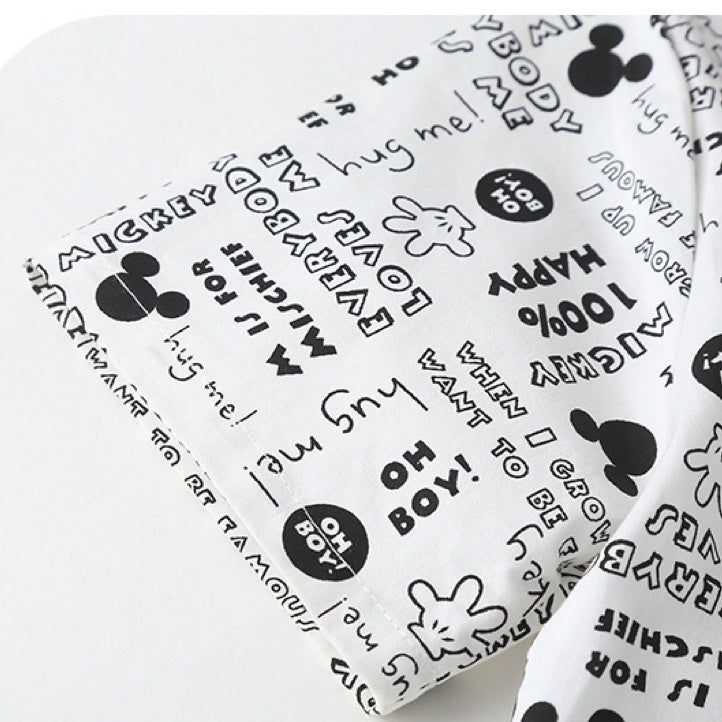 HO
IS
MI
EVERYBODY
LOVES ME
hug me!
hug me!
OH
BOY!
MICKEY
EVERYBODY
LOVES ME
M IS FOR
MISCHIEF
WHEN I GROW UP I
WANT TO BE FAMOUS
100%
HAPPY
MICKEY
hug me!
hug me!
WHEN I GROW
WANT TO BE
OH
BOY!
OH
BOY!
WANT TO BE FAMOUS
hug me!
EVERYBODY
LOVES
M IS FOR
MISCHIEF